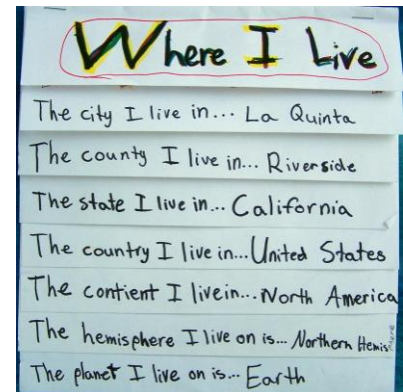 Where I Live
The city I live in... La Quinta
The county I live in... Riverside
The state I live in... California
The country I live in... United States
The contient I live in... North America
The hemisphere I live on is... Northern Hemisphere
The planet I live on is... Earth